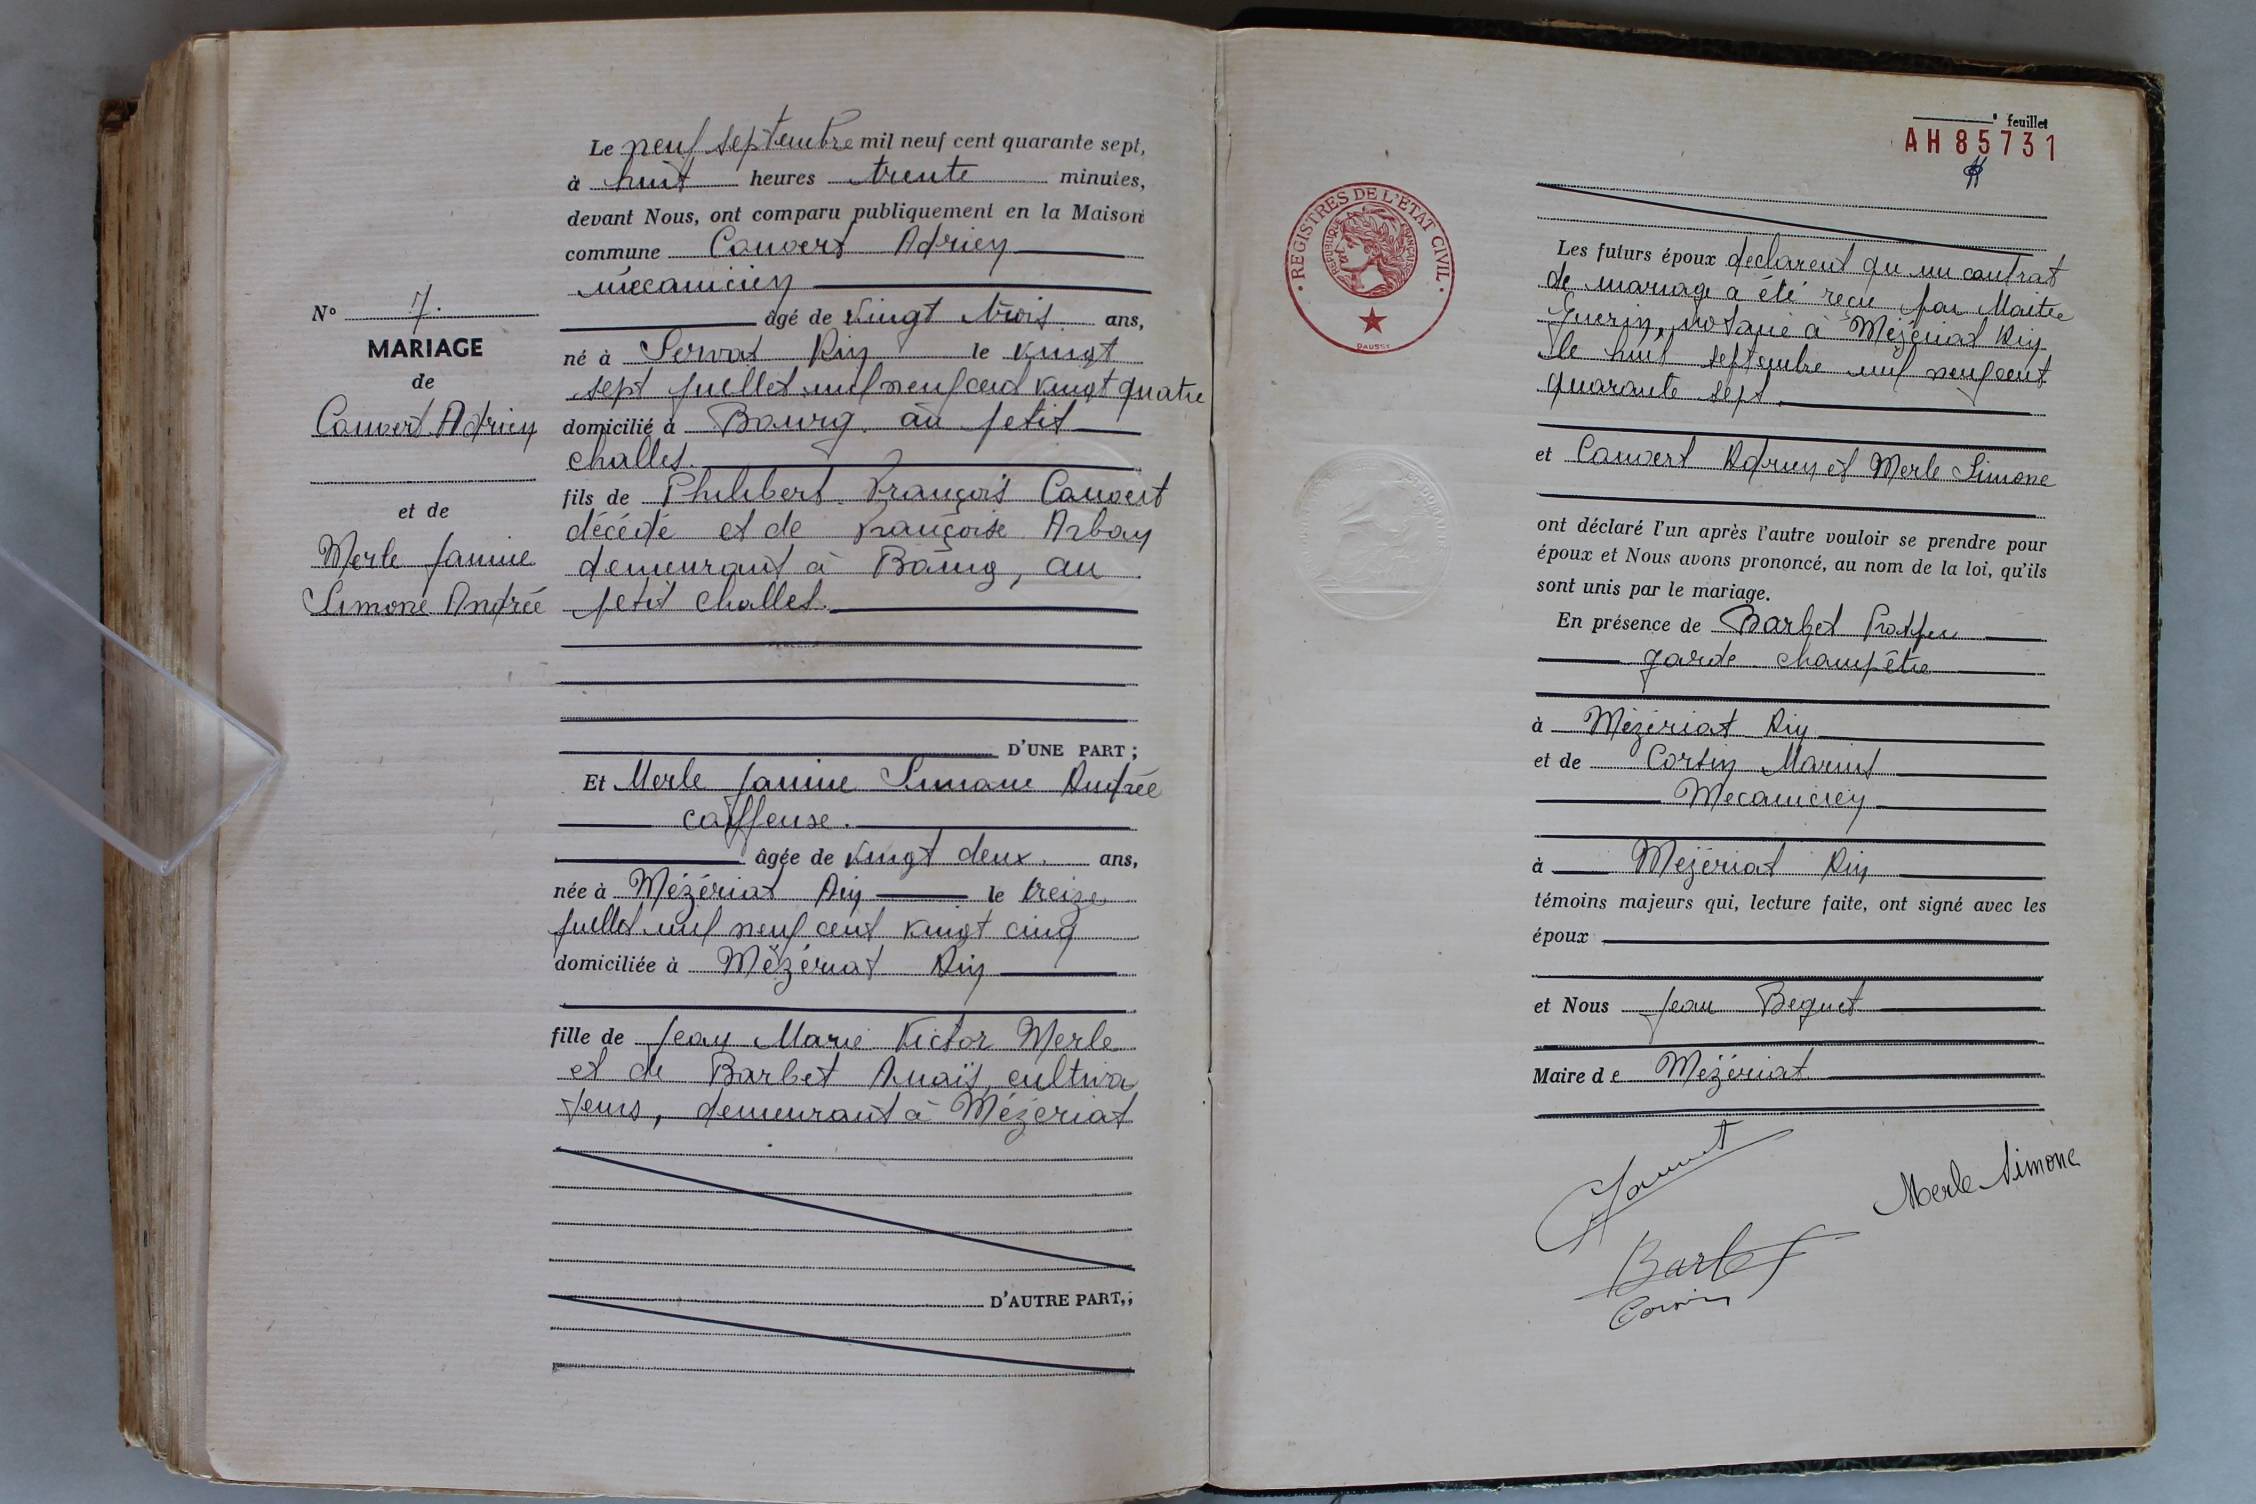 Le neuf septembre mil neuf cent quarante sept,
à huit heures trente minutes,
devant Nous, ont comparu publiquement en la Maison
commune Convert Adrien
mécanicien
âgé de vingt trois ans,
né à Servas Ain le vingt
sept juillet mil neuf cent vingt quatre
domicilié à Bourg au petit
challes.
fils de Philibert François Convert
décédé et de Françoise Arban
demeurant à Bourg, au
petit challes.
D'UNE PART ;
N° 7.
MARIAGE
de
Convert Adrien
et de
Merle Janine
Simone Andrée
Et Merle Janine Simone Andrée
coiffeuse.
âgée de vingt deux. ans,
née à Mézériat Ain le treize
juillet mil neuf cent vingt cinq
domiciliée à Mézériat Ain
fille de Jean Marie Victor Merle
et de Barbet Anaïs, cultiva
teurs, demeurant à Mézériat
D'AUTRE PART,;
feuillet
AH 85731
REGISTRES DE L'ÉTAT CIVIL
RÉPUBLIQUE FRANÇAISE
DAUSSY
Les futurs époux declarent qu un contrat
de mariage a été reçu par Maitre
Guerin, notaire à Mézériat Ain
le huit septembre mil neuf cent
quarante sept.
et Convert Adrien et Merle Simone
ont déclaré l'un après l'autre vouloir se prendre pour
époux et Nous avons prononcé, au nom de la loi, qu'ils
sont unis par le mariage.
En présence de Barbet
garde champêtre
à Mézériat Ain
et de Corsin Marius
Mecanicien
à Mézériat Ain
témoins majeurs qui, lecture faite, ont signé avec les
époux
et Nous Jean Beguet
Maire de Mézériat
Merle Simone
Barbet
Corsin